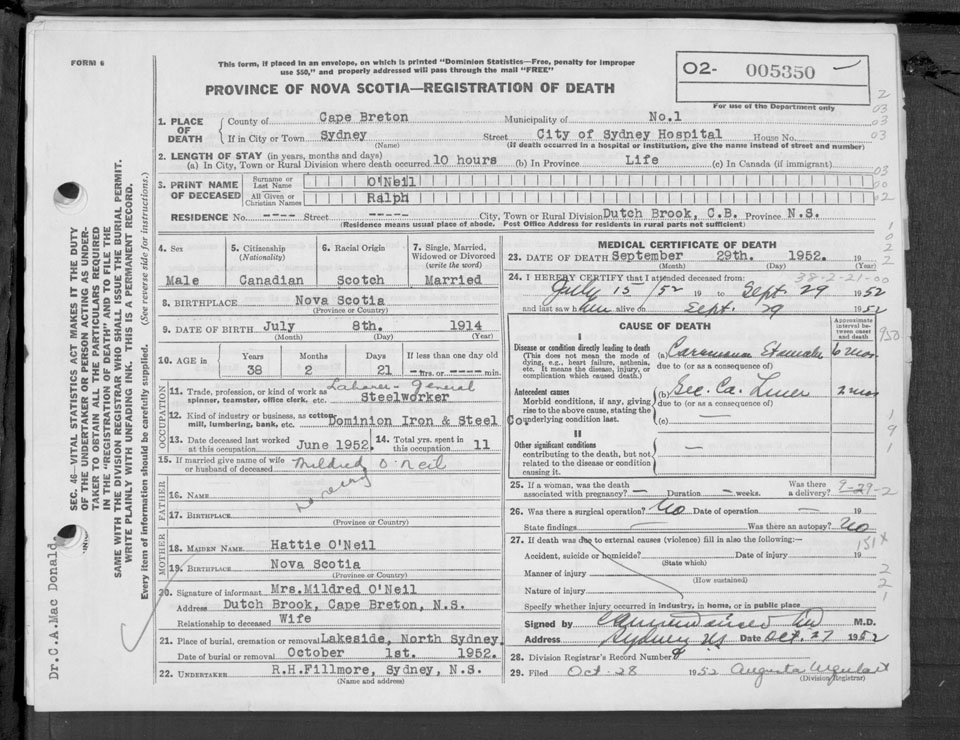 FORM 6
This form, if placed in an envelope, on which is printed "Dominion Statistics—Free, penalty for improper
use $50," and properly addressed will pass through the mail "FREE"
PROVINCE OF NOVA SCOTIA—REGISTRATION OF DEATH
O2- 005350
For use of the Department only
1. PLACE OF DEATH
County of Cape Breton Municipality of No.1
If in City or Town Sydney Street City of Sydney Hospital House No.
(Name) (If death occurred in a hospital or institution, give the name instead of street and number)
2. LENGTH OF STAY (in years, months and days)
(a) In City, Town or Rural Division where death occurred 10 hours (b) In Province Life (c) In Canada (if immigrant)
3. PRINT NAME OF DECEASED
Surname or Last Name O'Neil
All Given or Christian Names Ralph
RESIDENCE No. ---- Street ----- City, Town or Rural Division Dutch Brook, C.B. Province N.S.
(Residence means usual place of abode. Post Office Address for residents in rural parts not sufficient)
4. Sex
Male
5. Citizenship
(Nationality)
Canadian
6. Racial Origin
Scotch
7. Single, Married, Widowed or Divorced
(write the word)
Married
8. BIRTHPLACE Nova Scotia
(Province or Country)
9. DATE OF BIRTH July 8th. 1914
(Month) (Day) (Year)
10. AGE in
Years Months Days If less than one day old
38 2 21 --hrs. or ----- min.
OCCUPATION
11. Trade, profession, or kind of work as spinner, teamster, office clerk, etc. Laborer - general
Steelworker
12. Kind of industry or business, as cotton mill, lumbering, bank, etc. Dominion Iron & Steel Co.
13. Date deceased last worked at this occupation June 1952.
14. Total yrs. spent in this occupation 11
15. If married give name of wife or husband of deceased Mildred O'Neil
FATHER
16. NAME
17. BIRTHPLACE
(Province or Country)
MOTHER
18. MAIDEN NAME Hattie O'Neil
19. BIRTHPLACE Nova Scotia
(Province or Country)
20. Signature of informant Mrs.Mildred O'Neil
Address Dutch Brook, Cape Breton, N.S.
Relationship to deceased Wife
21. Place of burial, cremation or removal Lakeside, North Sydney.
Date of burial or removal October 1st. 1952.
22. UNDERTAKER R.H.Fillmore, Sydney, N.S.
(Name and address)
MEDICAL CERTIFICATE OF DEATH
23. DATE OF DEATH September 29th. 1952. 19
(Month) (Day) (Year)
38-2-21-00
24. I HEREBY CERTIFY that I attended deceased from:
July 15/52 19 to Sept 29 1952
and last saw him alive on Sept. 29 1952
CAUSE OF DEATH
Approximate interval between onset and death
I
Disease or condition directly leading to death
(This does not mean the mode of dying, e.g., heart failure, asthenia, etc. It means the disease, injury, or complication which caused death.)
(a) Carcinoma Stomach 6 mos
due to (or as a consequence of)
Antecedent causes
Morbid conditions, if any, giving rise to the above cause, stating the underlying condition last.
(b) Sec. Ca. Liver 2 mos
due to (or as a consequence of)
(c)
II
Other significant conditions
contributing to the death, but not related to the disease or condition causing it.
—
25. If a woman, was the death associated with pregnancy? — Duration — weeks. Was there a delivery?
9-29-2
26. Was there a surgical operation? No Date of operation — 19
State findings — Was there an autopsy? No
151X
27. If death was due to external causes (violence) fill in also the following:—
Accident, suicide or homicide? Date of injury 19
(State which)
Manner of injury
(How sustained)
Nature of injury
Specify whether injury occurred in industry, in home, or in public place
Signed by M.D.
Address Sydney NS Date Oct. 27 1952
28. Division Registrar's Record Number
29. Filed Oct-28 1952 Augusta Urquhart
(Division Registrar)
SEC. 46—VITAL STATISTICS ACT MAKES IT THE DUTY
OF THE UNDERTAKER OR PERSON ACTING AS UNDERTAKER TO OBTAIN ALL THE PARTICULARS REQUIRED
IN THE "REGISTRATION OF DEATH" AND TO FILE THE
SAME WITH THE DIVISION REGISTRAR WHO SHALL ISSUE THE BURIAL PERMIT.
WRITE PLAINLY WITH UNFADING INK. THIS IS A PERMANENT RECORD.
Every item of information should be carefully supplied. (See reverse side for instructions.)
Dr.C.A.Mac Donald.